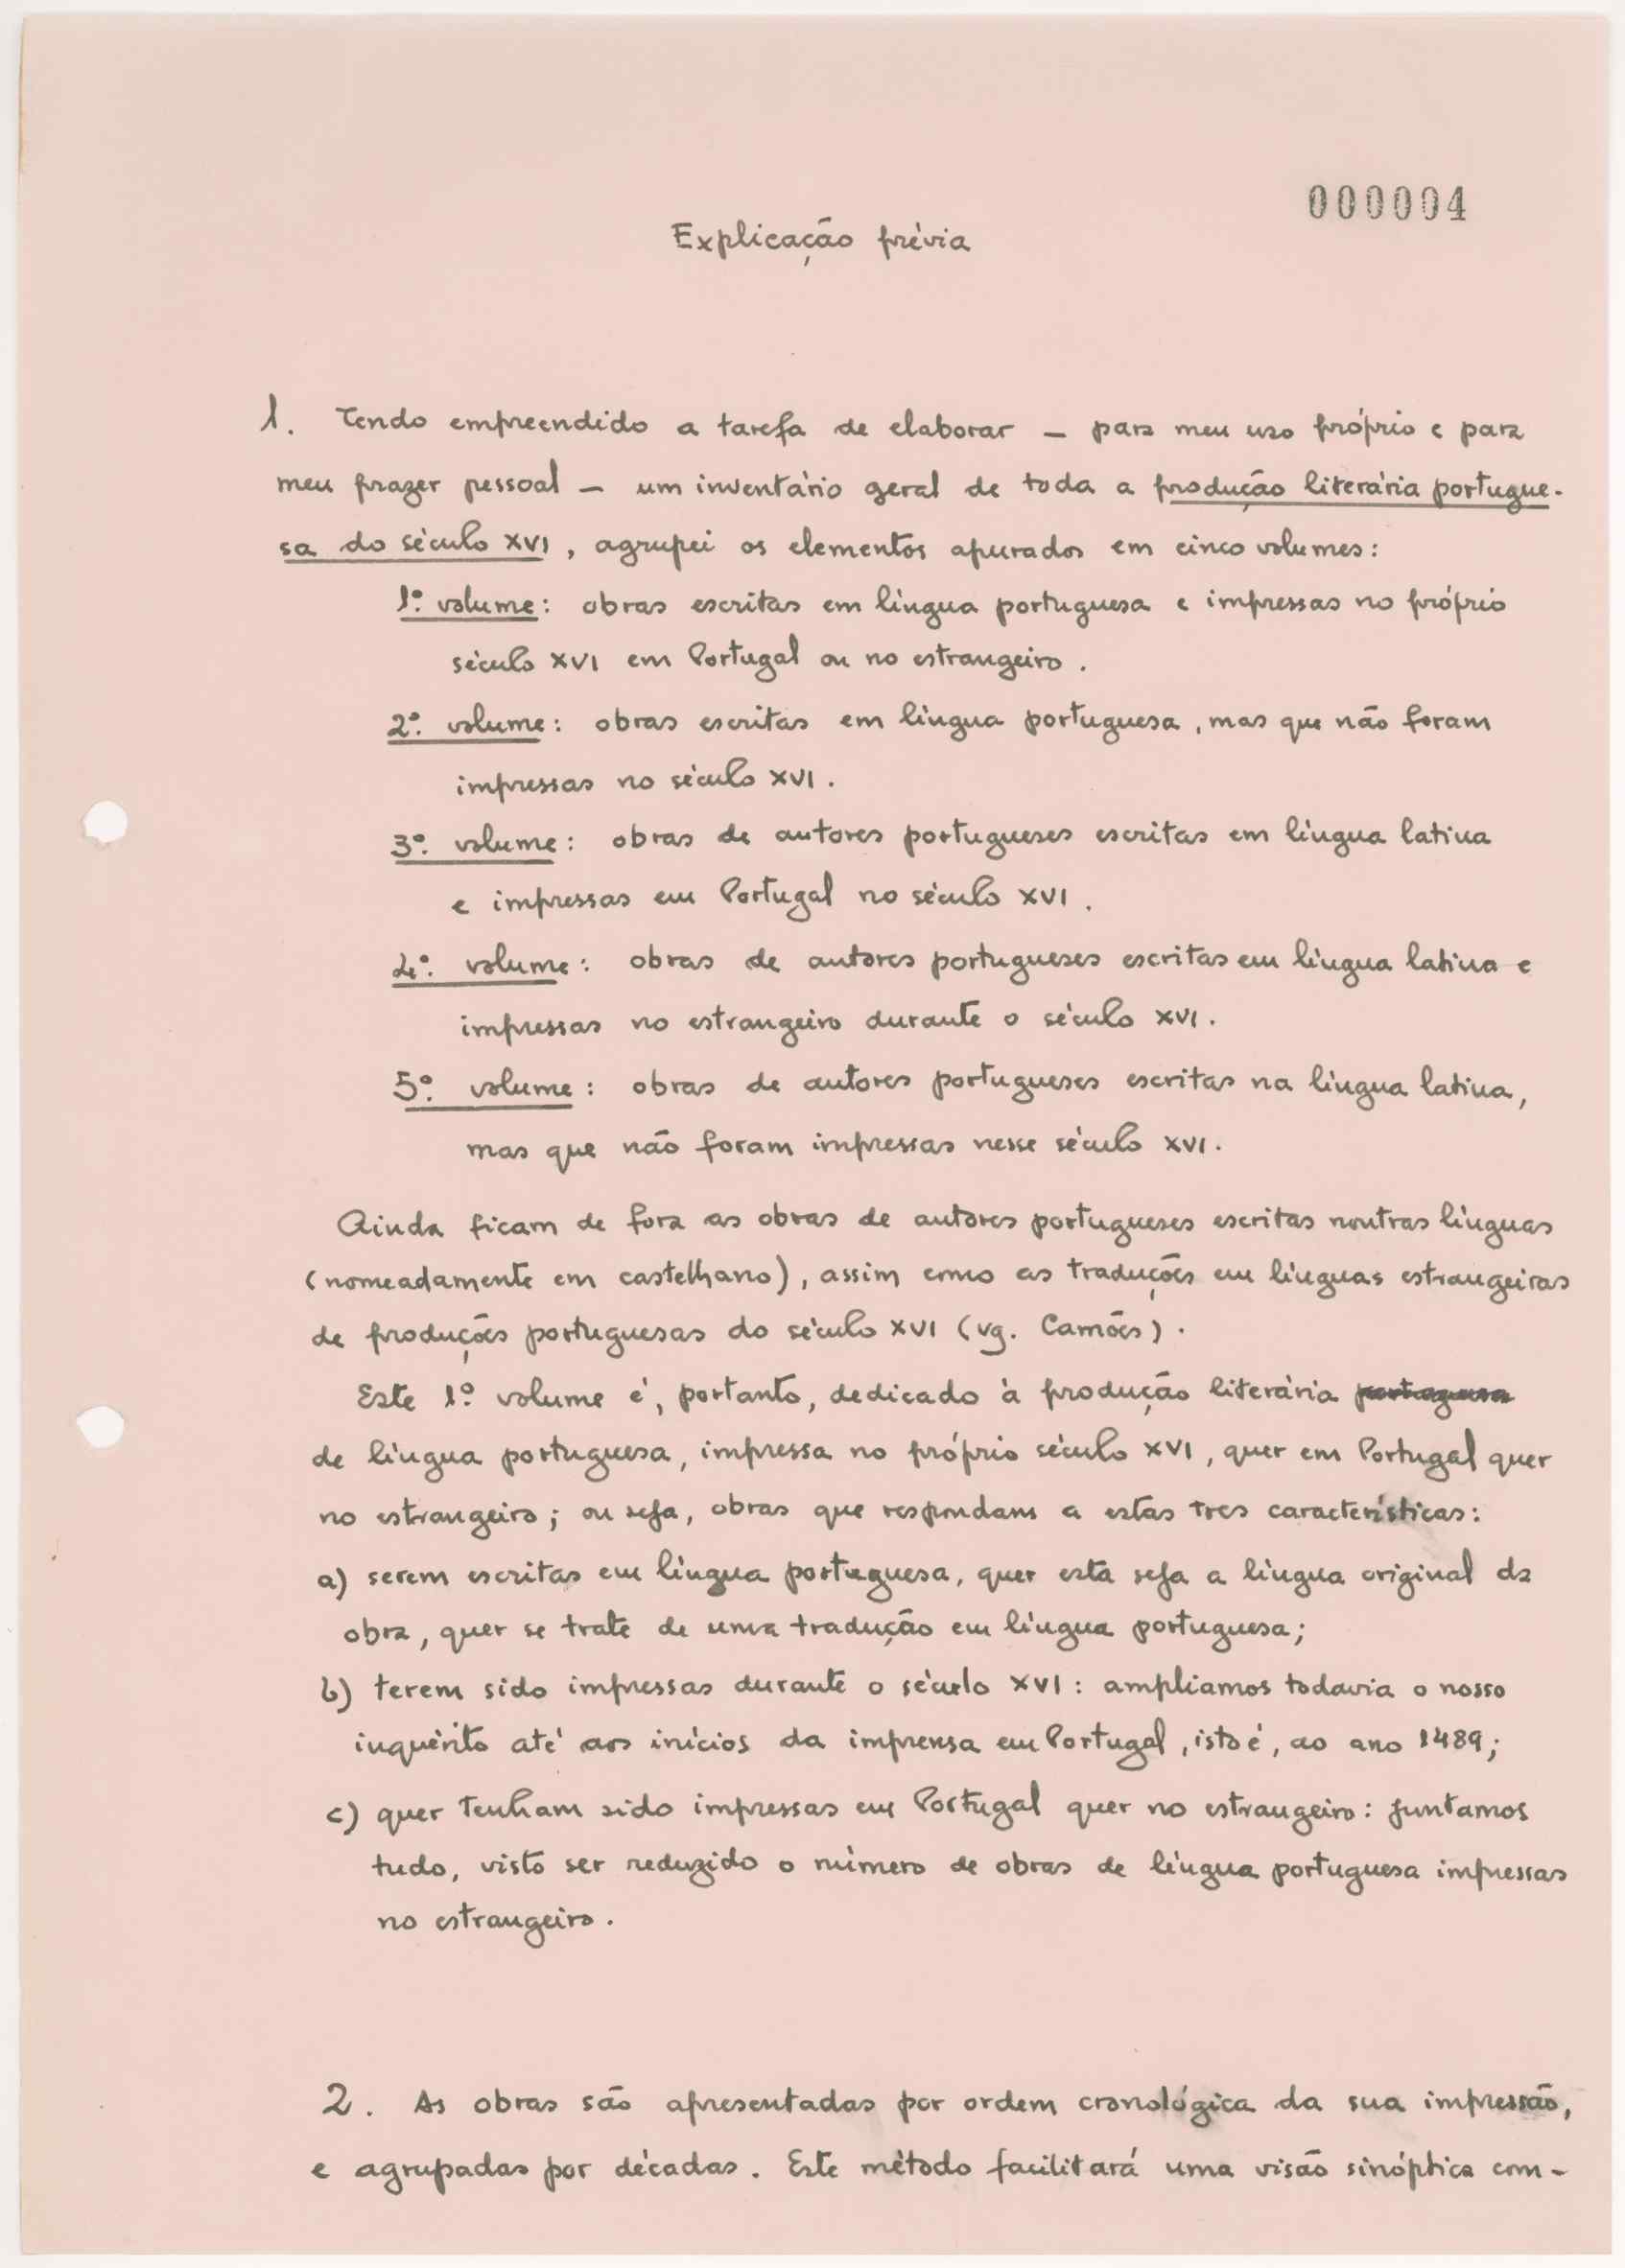 000004
Explicação prévia
1. Tendo empreendido a tarefa de elaborar — para meu uso próprio e para
meu prazer pessoal — um inventário geral de toda a produção literária portugue-
sa do século XVI, agrupei os elementos apurados em cinco volumes:
1º. volume: obras escritas em língua portuguesa e impressas no próprio
século XVI em Portugal ou no estrangeiro.
2º. volume: obras escritas em língua portuguesa, mas que não foram
impressas no século XVI.
3º. volume: obras de autores portugueses escritas em língua latina
e impressas em Portugal no século XVI.
4º. volume: obras de autores portugueses escritas em língua latina e
impressas no estrangeiro durante o século XVI.
5º. volume: obras de autores portugueses escritas na língua latina,
mas que não foram impressas nesse século XVI.
Ainda ficam de fora as obras de autores portugueses escritas noutras línguas
(nomeadamente em castelhano), assim como as traduções em línguas estrangeiras
de produções portuguesas do século XVI (vg. Camões).
Este 1º. volume é, portanto, dedicado à produção literária portuguesa
de língua portuguesa, impressa no próprio século XVI, quer em Portugal quer
no estrangeiro; ou seja, obras que respondam a estas tres características:
a) serem escritas em língua portuguesa, quer esta seja a língua original da
obra, quer se trate de uma tradução em língua portuguesa;
b) terem sido impressas durante o século XVI: ampliamos todavia o nosso
inquérito até aos inícios da imprensa em Portugal, isto é, ao ano 1489;
c) quer tenham sido impressas em Portugal quer no estrangeiro: juntamos
tudo, visto ser reduzido o número de obras de língua portuguesa impressas
no estrangeiro.
2. As obras são apresentadas por ordem cronológica da sua impressão,
e agrupadas por décadas. Este método facilitará uma visão sinóptica com-